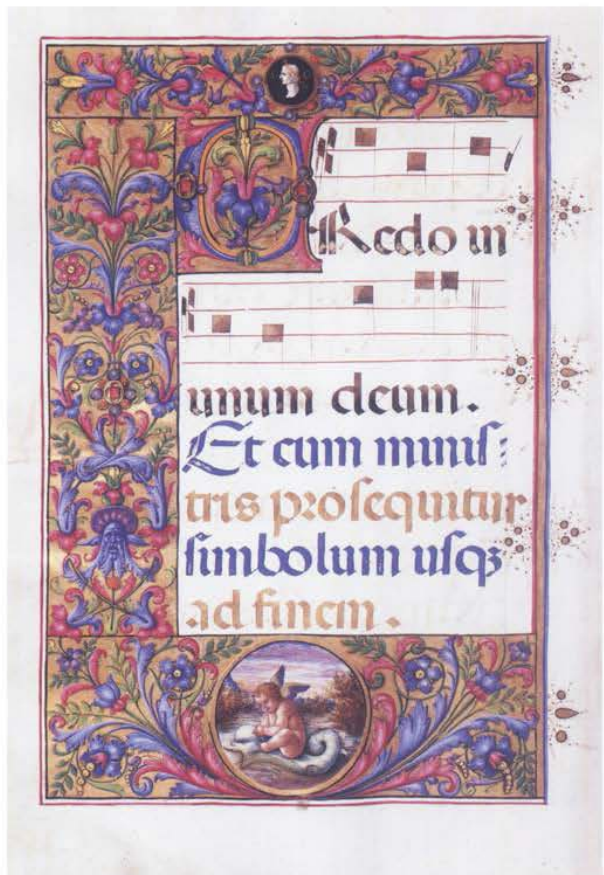 CRedo in
unum deum.
Et cum minis⸗
tris prosequitur
simbolum usqꝫ
ad finem.